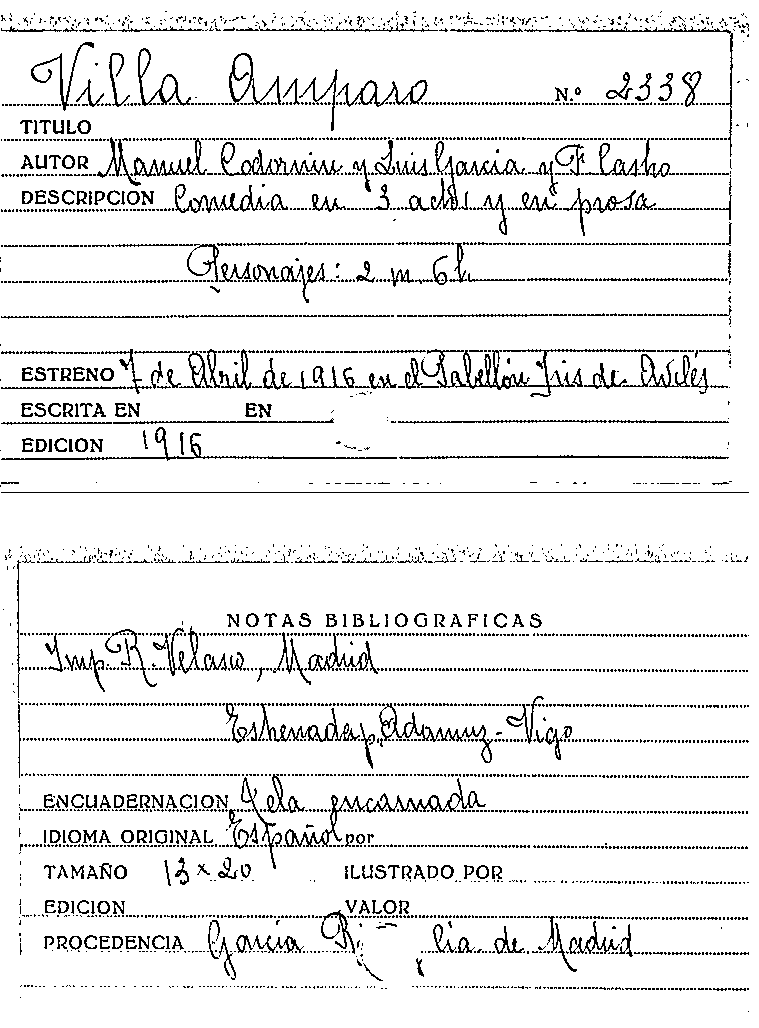 Villa Amparo N.º 2338
TITULO
AUTOR Manuel Codorniu y Luis Garcia y F. Castro
DESCRIPCION Comedia en 3 actos y en prosa
Personajes: 2 m. 6 h.
ESTRENO 7 de Abril de 1916 en el Pabellón Iris de Avilés
ESCRITA EN EN
EDICION 1916
NOTAS BIBLIOGRAFICAS
Imp. R. Velasco, Madrid
Estrenada p. Adamuz-Vigo
ENCUADERNACION Tela encarnada
IDIOMA ORIGINAL Español por
TAMAÑO 13 x 20 ILUSTRADO POR
EDICION VALOR
PROCEDENCIA Garcia de Madrid